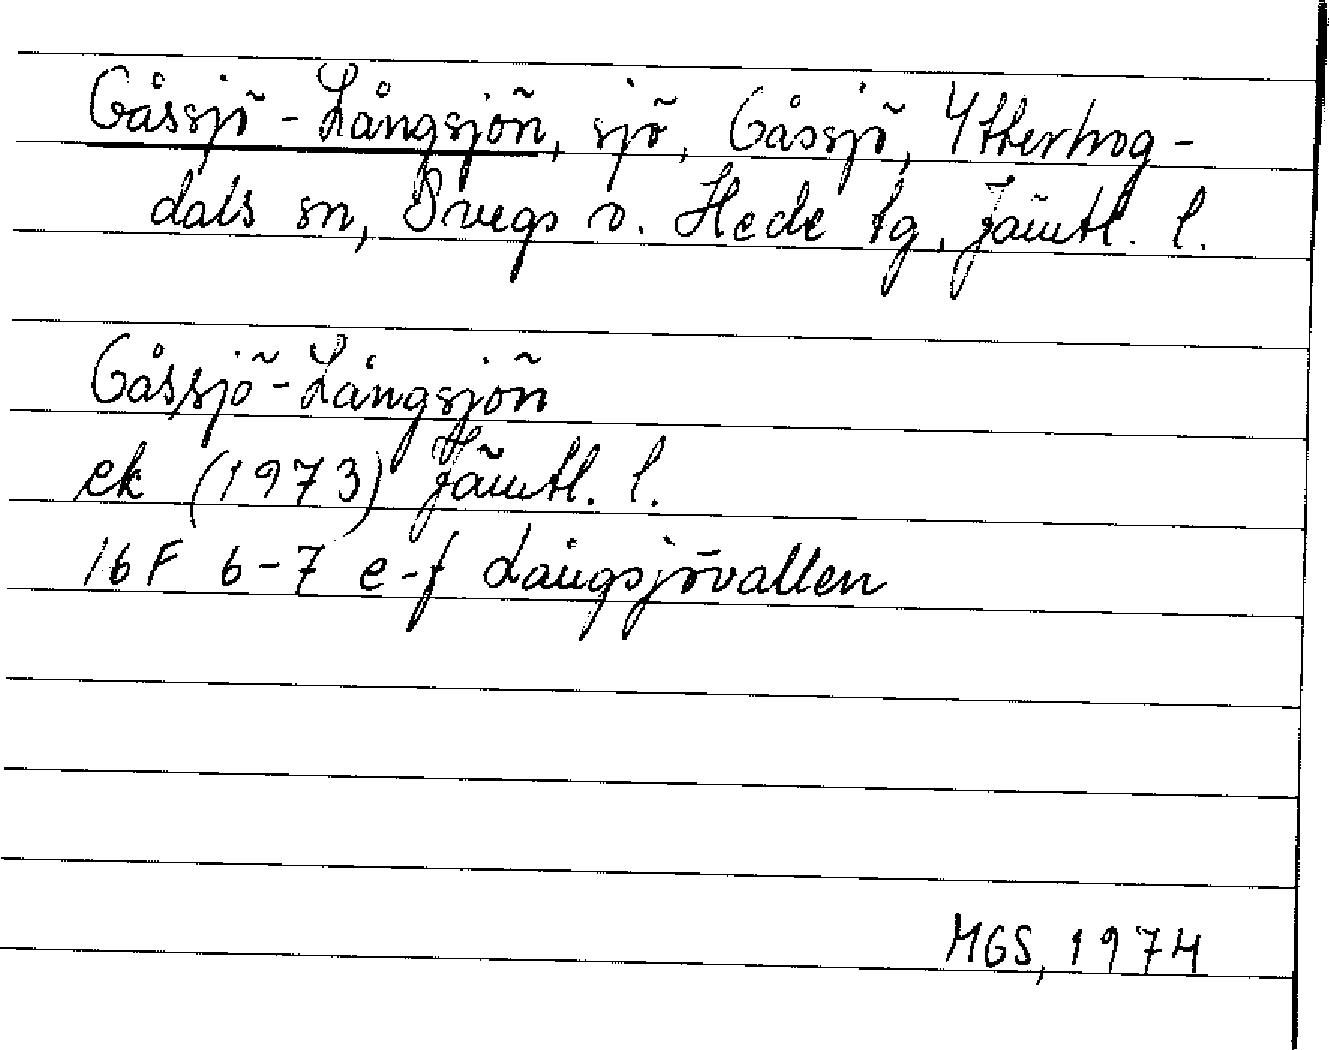 Gåssjö-Långsjön, sjö, Gåssjö, Ytterhog-
dals sn, Svegs o. Hede tg, Jämtl. l.
Gåssjö-Långsjön
ek (1973) Jämtl. l.
16F 6-7 e-f Långsjövallen
MGS, 1974